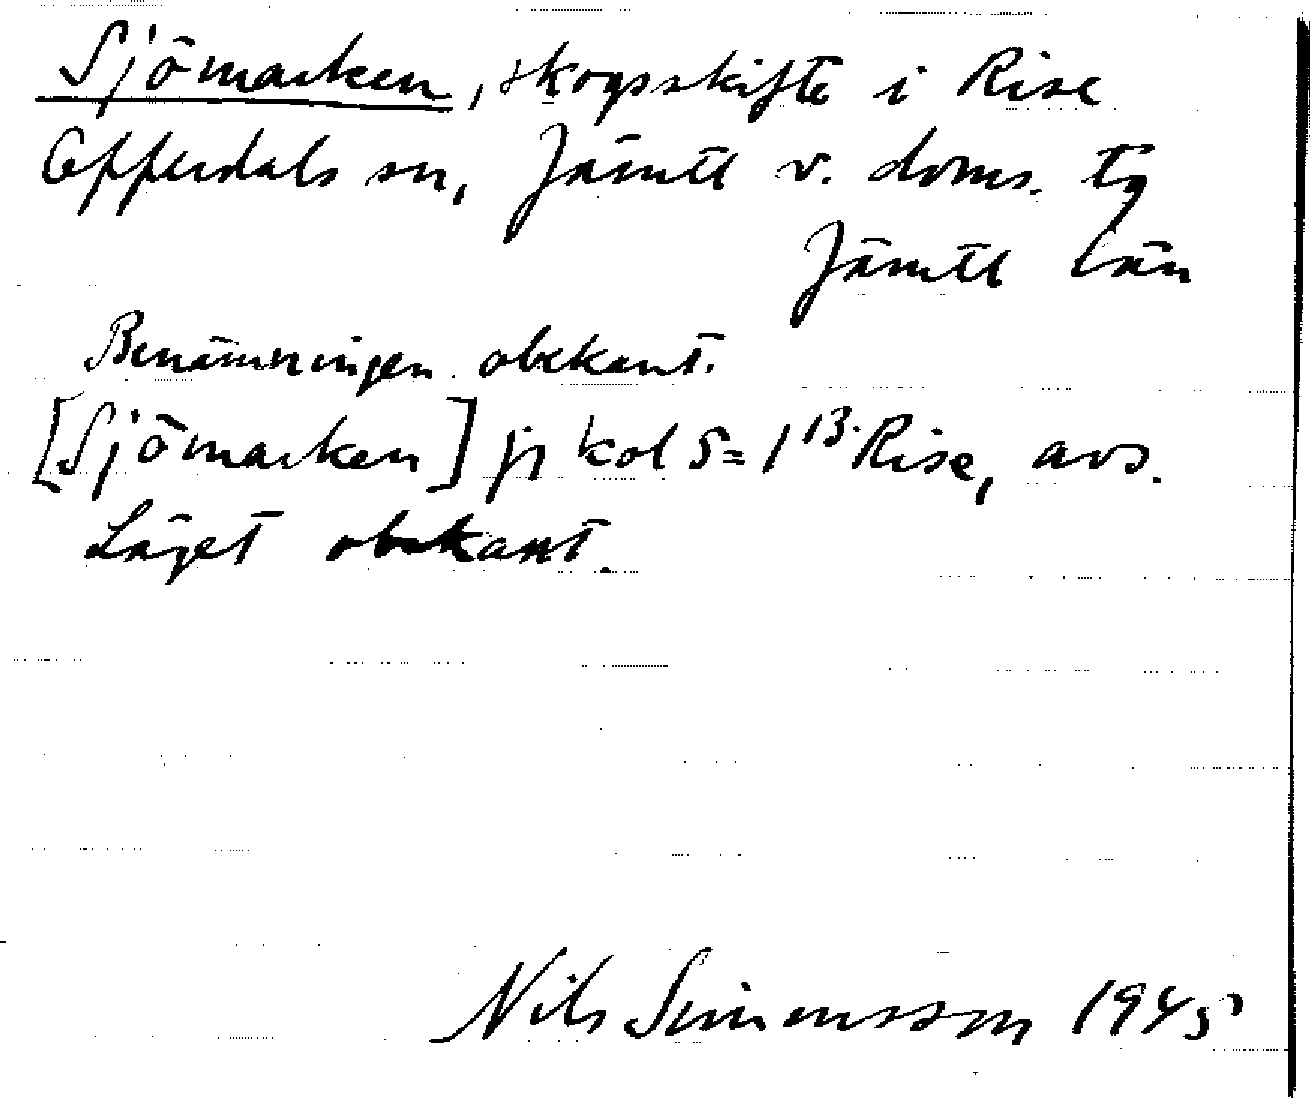 Sjömarken, skogsskifte i Rise
Offerdals sn, Jämtl v. doms. tg
Jämtl län
Benämningen obekant.
[Sjömarken] jr kol 5 = 1 13. Rise, avs.
Läget obekant.
Nils Simonsson 1945